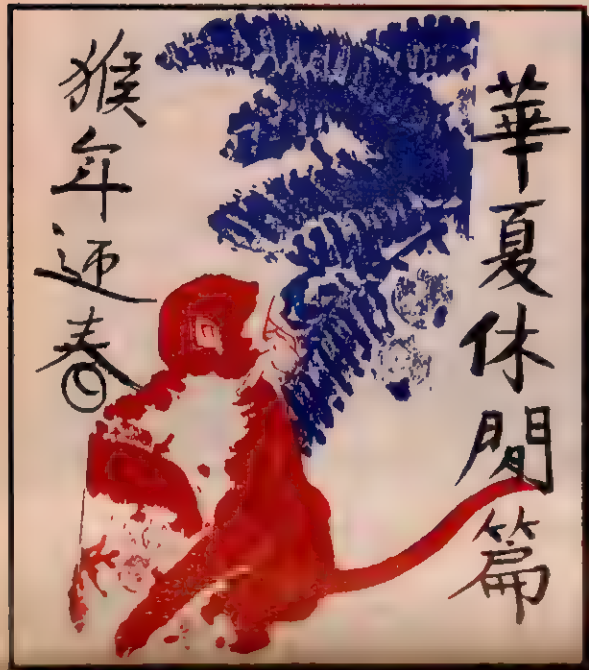 華夏休閒篇
猴年迎春